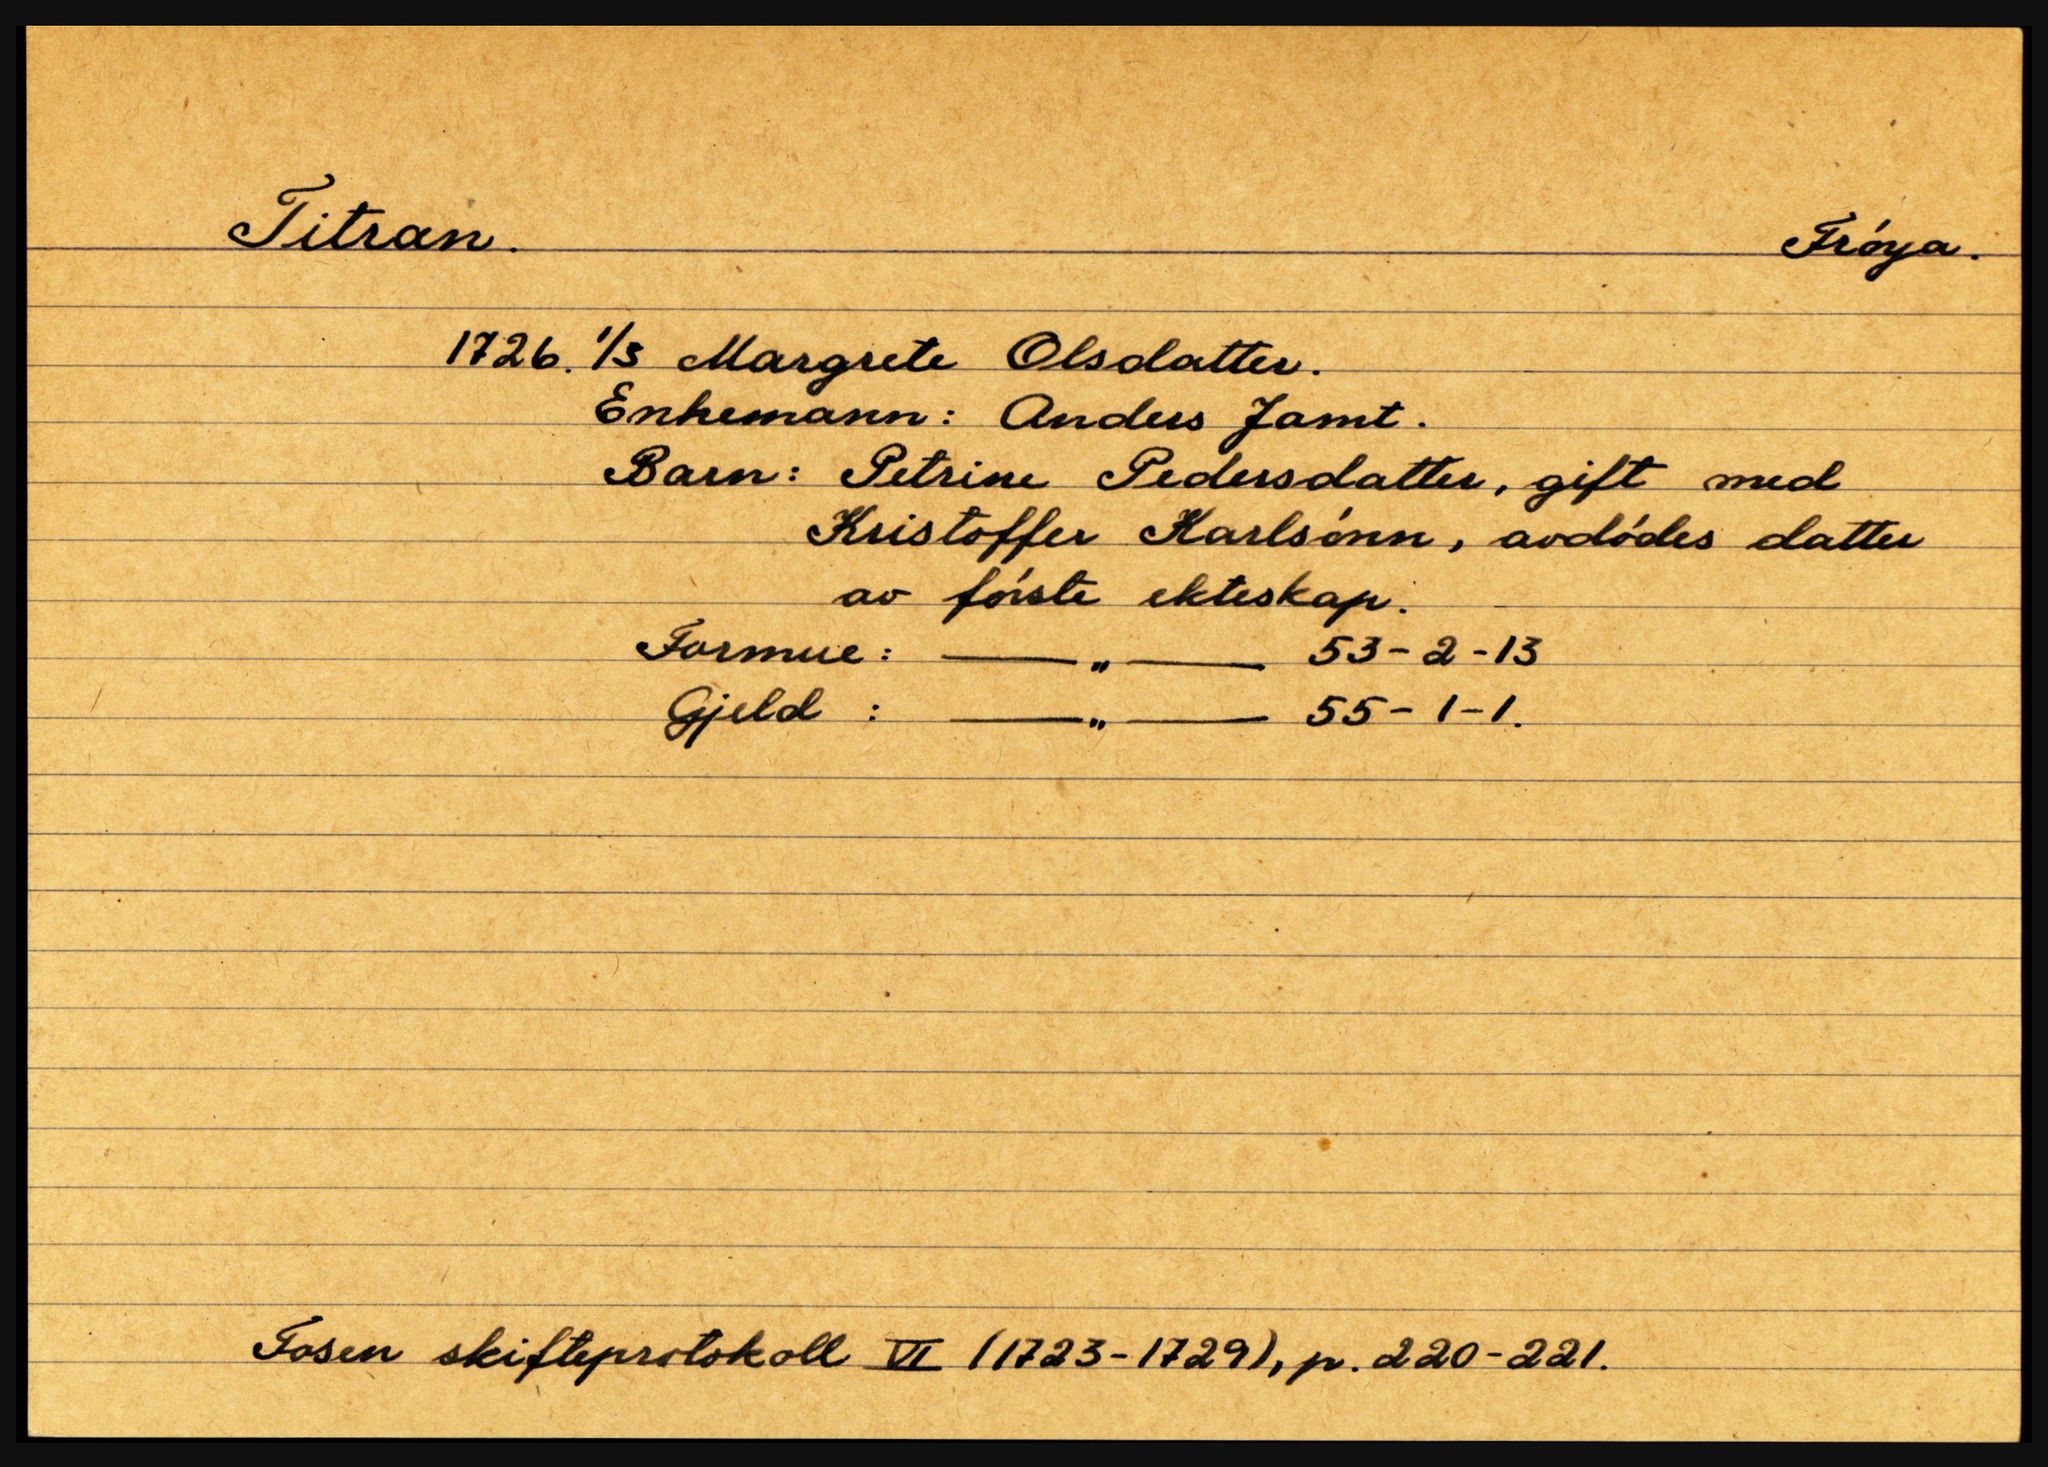 Titran. Fróya.
1726. 1/3 Margrete Olsdatter.
Enkemann: Anders Jamt.
Barn: Petrine Pedersdatter, gift med
Kristoffer Karlsónn, avdódes datter
av fórste ekteskap.
Formue: —„— 53-2-13
Gjeld : —„— 55-1-1.
Fosen skifteprotokoll VI (1723-1729), p. 220-221.